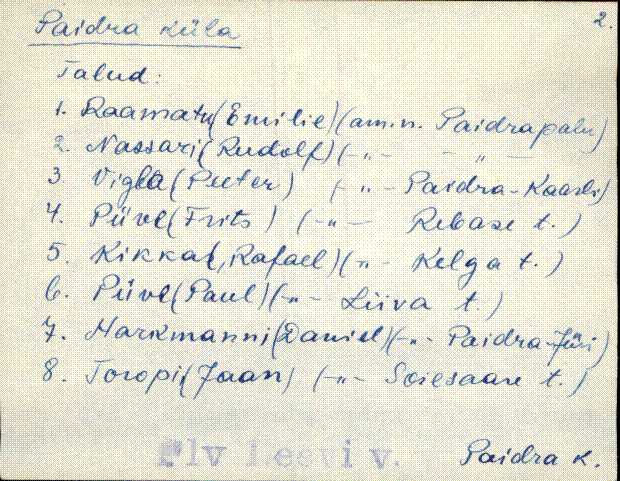 2.
Paidra küla
Talud:
1. Raamatu (Emilie) (am.n. Paidrapalu)
2. Nassari (Rudolf) (-„- -„-
3 Vigla (Peeter) (-„- Paidra-Kaarli)
4. Püve (Frits) (-„- Rebase t.)
5. Kikka (Rafael) (-„- Kelga t.)
6. Püve (Paul) (-„- Liiva t.)
7. Markmanni (Daniel) (-„- Paidra-Jüri)
8. Toropi (Jaan) (-„- Soesaare t.)
Plv Leevi v.
Paidra k.